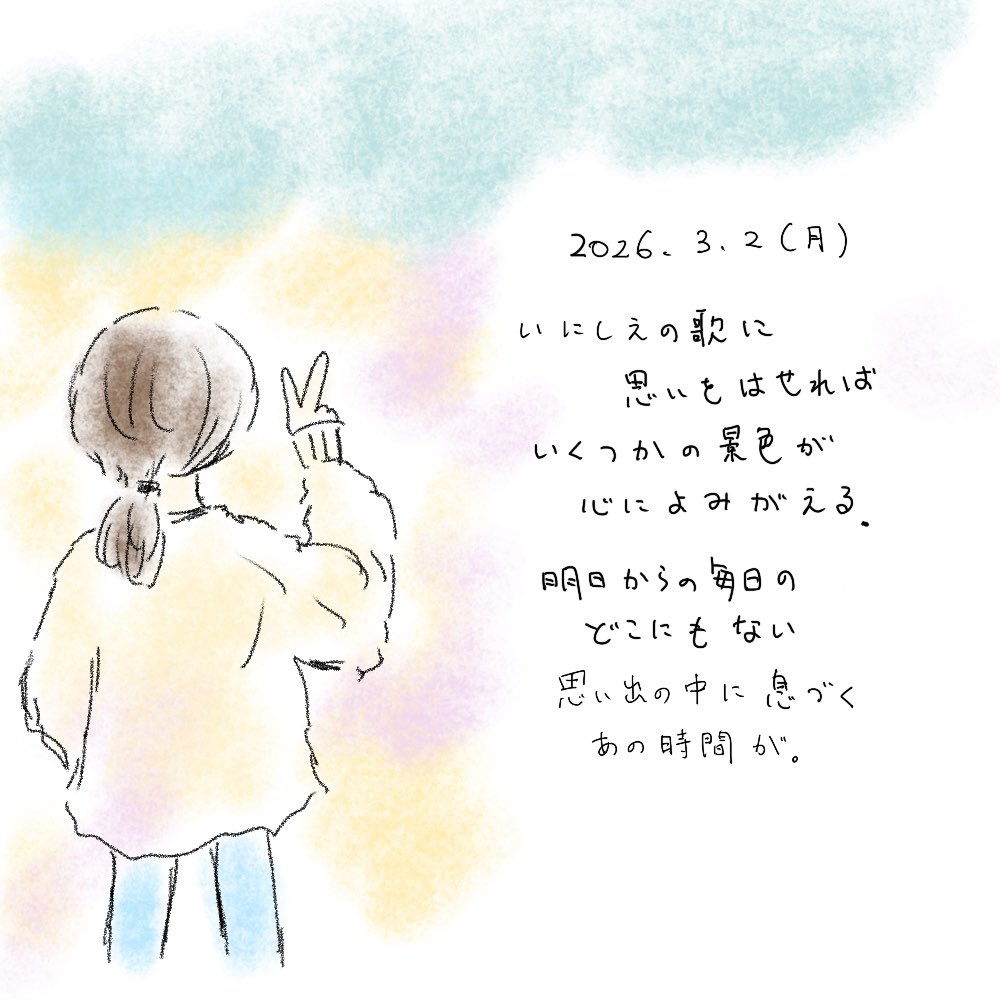 2026.3.2(月)
いにしえの歌に
思いをはせれば
いくつかの景色が
心によみがえる.
明日からの毎日の
どこにもない
思い出の中に息づく
あの時間が。